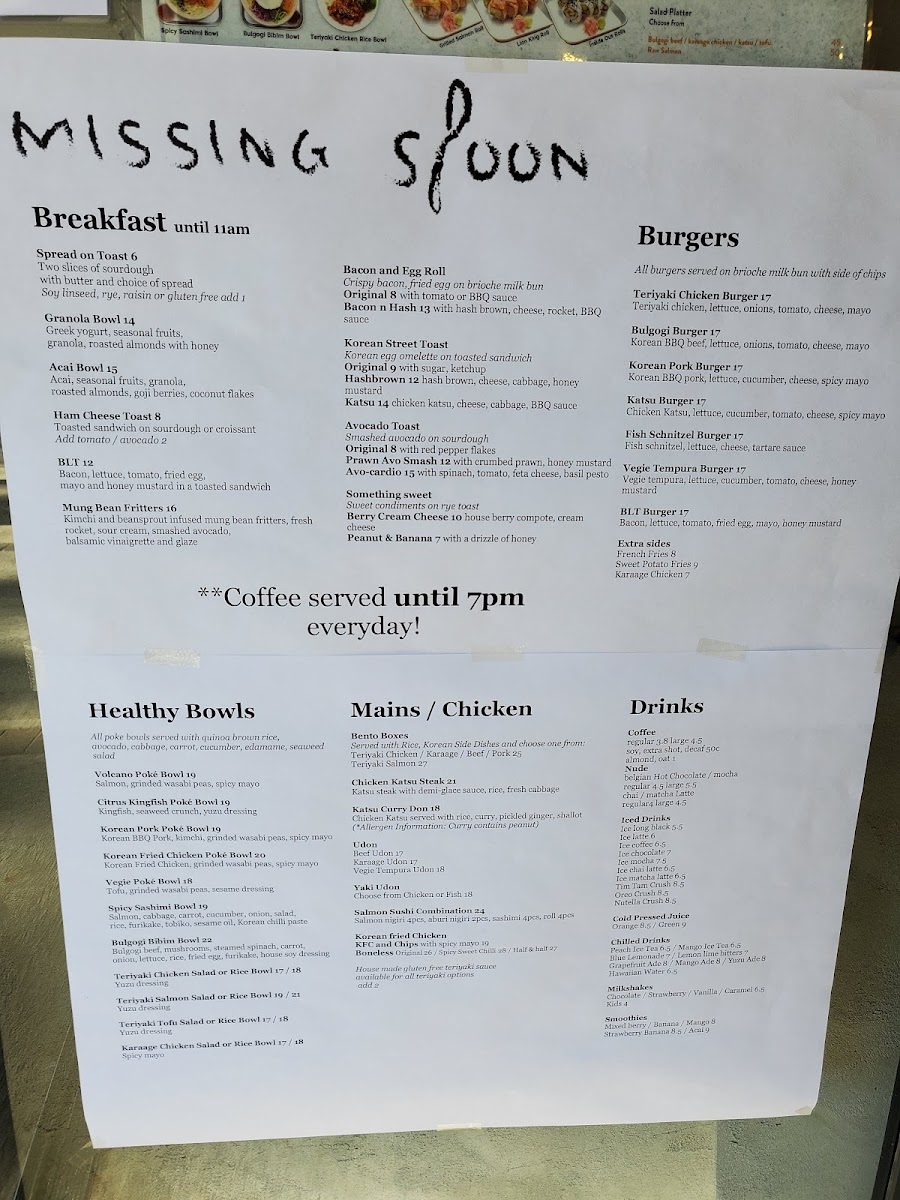 Spicy Sashimi Bowl
Bulgogi Bibim Bowl
Teriyaki Chicken Rice Bowl
Grilled Salmon Roll
Lion King Roll
Inside Out Rolls
Salad Platter
Choose from
Bulgogi beef / karaage chicken / katsu / tofu
Raw Salmon
MISSING SPOON
Breakfast until 11am
Spread on Toast 6
Two slices of sourdough
with butter and choice of spread
Soy linseed, rye, raisin or gluten free add 1
Granola Bowl 14
Greek yogurt, seasonal fruits,
granola, roasted almonds with honey
Acai Bowl 15
Acai, seasonal fruits, granola,
roasted almonds, goji berries, coconut flakes
Ham Cheese Toast 8
Toasted sandwich on sourdough or croissant
Add tomato / avocado 2
BLT 12
Bacon, lettuce, tomato, fried egg,
mayo and honey mustard in a toasted sandwich
Mung Bean Fritters 16
Kimchi and beansprout infused mung bean fritters, fresh
rocket, sour cream, smashed avocado,
balsamic vinaigrette and glaze
Bacon and Egg Roll
Crispy bacon, fried egg on brioche milk bun
Original 8 with tomato or BBQ sauce
Bacon n Hash 13 with hash brown, cheese, rocket, BBQ
sauce
Korean Street Toast
Korean egg omelette on toasted sandwich
Original 9 with sugar, ketchup
Hashbrown 12 hash brown, cheese, cabbage, honey
mustard
Katsu 14 chicken katsu, cheese, cabbage, BBQ sauce
Avocado Toast
Smashed avocado on sourdough
Original 8 with red pepper flakes
Prawn Avo Smash 12 with crumbed prawn, honey mustard
Avo-cardio 15 with spinach, tomato, feta cheese, basil pesto
Something sweet
Sweet condiments on rye toast
Berry Cream Cheese 10 house berry compote, cream
cheese
Peanut & Banana 7 with a drizzle of honey
Burgers
All burgers served on brioche milk bun with side of chips
Teriyaki Chicken Burger 17
Teriyaki chicken, lettuce, onions, tomato, cheese, mayo
Bulgogi Burger 17
Korean BBQ beef, lettuce, onions, tomato, cheese, mayo
Korean Pork Burger 17
Korean BBQ pork, lettuce, cucumber, cheese, spicy mayo
Katsu Burger 17
Chicken Katsu, lettuce, cucumber, tomato, cheese, spicy mayo
Fish Schnitzel Burger 17
Fish schnitzel, lettuce, cheese, tartare sauce
Vegie Tempura Burger 17
Vegie tempura, lettuce, cucumber, tomato, cheese, honey
mustard
BLT Burger 17
Bacon, lettuce, tomato, fried egg, mayo, honey mustard
Extra sides
French Fries 8
Sweet Potato Fries 9
Karaage Chicken 7
**Coffee served until 7pm
everyday!
Healthy Bowls
All poke bowls served with quinoa brown rice,
avocado, cabbage, carrot, cucumber, edamame, seaweed
salad
Volcano Poké Bowl 19
Salmon, grinded wasabi peas, spicy mayo
Citrus Kingfish Poké Bowl 19
Kingfish, seaweed crunch, yuzu dressing
Korean Pork Poké Bowl 19
Korean BBQ Pork, kimchi, grinded wasabi peas, spicy mayo
Korean Fried Chicken Poké Bowl 20
Korean Fried Chicken, grinded wasabi peas, spicy mayo
Vegie Poké Bowl 18
Tofu, grinded wasabi peas, sesame dressing
Spicy Sashimi Bowl 19
Salmon, cabbage, carrot, cucumber, onion, salad,
rice, furikake, tobiko, sesame oil, Korean chilli paste
Bulgogi Bibim Bowl 22
Bulgogi beef, mushrooms, steamed spinach, carrot,
onion, lettuce, rice, fried egg, furikake, house soy dressing
Teriyaki Chicken Salad or Rice Bowl 17 / 18
Yuzu dressing
Teriyaki Salmon Salad or Rice Bowl 19 / 21
Yuzu dressing
Teriyaki Tofu Salad or Rice Bowl 17 / 18
Yuzu dressing
Karaage Chicken Salad or Rice Bowl 17 / 18
Spicy mayo
Mains / Chicken
Bento Boxes
Served with Rice, Korean Side Dishes and choose one from:
Teriyaki Chicken / Karaage / Beef / Pork 25
Teriyaki Salmon 27
Chicken Katsu Steak 21
Katsu steak with demi-glace sauce, rice, fresh cabbage
Katsu Curry Don 18
Chicken Katsu served with rice, curry, pickled ginger, shallot
(*Allergen Information: Curry contains peanut)
Udon
Beef Udon 17
Karaage Udon 17
Vegie Tempura Udon 18
Yaki Udon
Choose from Chicken or Fish 18
Salmon Sushi Combination 24
Salmon nigiri 4pcs, aburi nigiri 2pcs, sashimi 4pcs, roll 4pcs
Korean fried Chicken
KFC and Chips with spicy mayo 19
Boneless Original 26 / Spicy Sweet Chilli 28 / Half & half 27
House made gluten free teriyaki sauce
available for all teriyaki options
add 2
Drinks
Coffee
regular 3.8 large 4.5
soy, extra shot, decaf 50c
almond, oat 1
Nude
belgian Hot Chocolate / mocha
regular 4.5 large 5.5
chai / matcha Latte
regular4 large 4.5
Iced Drinks
Ice long black 5.5
Ice latte 6
Ice coffee 6.5
Ice chocolate 7
Ice mocha 7.5
Ice chai latte 6.5
Ice matcha latte 6.5
Tim Tam Crush 8.5
Oreo Crush 8.5
Nutella Crush 8.5
Cold Pressed Juice
Orange 8.5 / Green 9
Chilled Drinks
Peach Ice Tea 6.5 / Mango Ice Tea 6.5
Blue Lemonade 7 / Lemon lime bitters 7
Grapefruit Ade 8 / Mango Ade 8 / Yuzu Ade 8
Hawaiian Water 6.5
Milkshakes
Chocolate / Strawberry / Vanilla / Caramel 6.5
Kids 4
Smoothies
Mixed berry / Banana / Mango 8
Strawberry Banana 8.5 / Acai 9